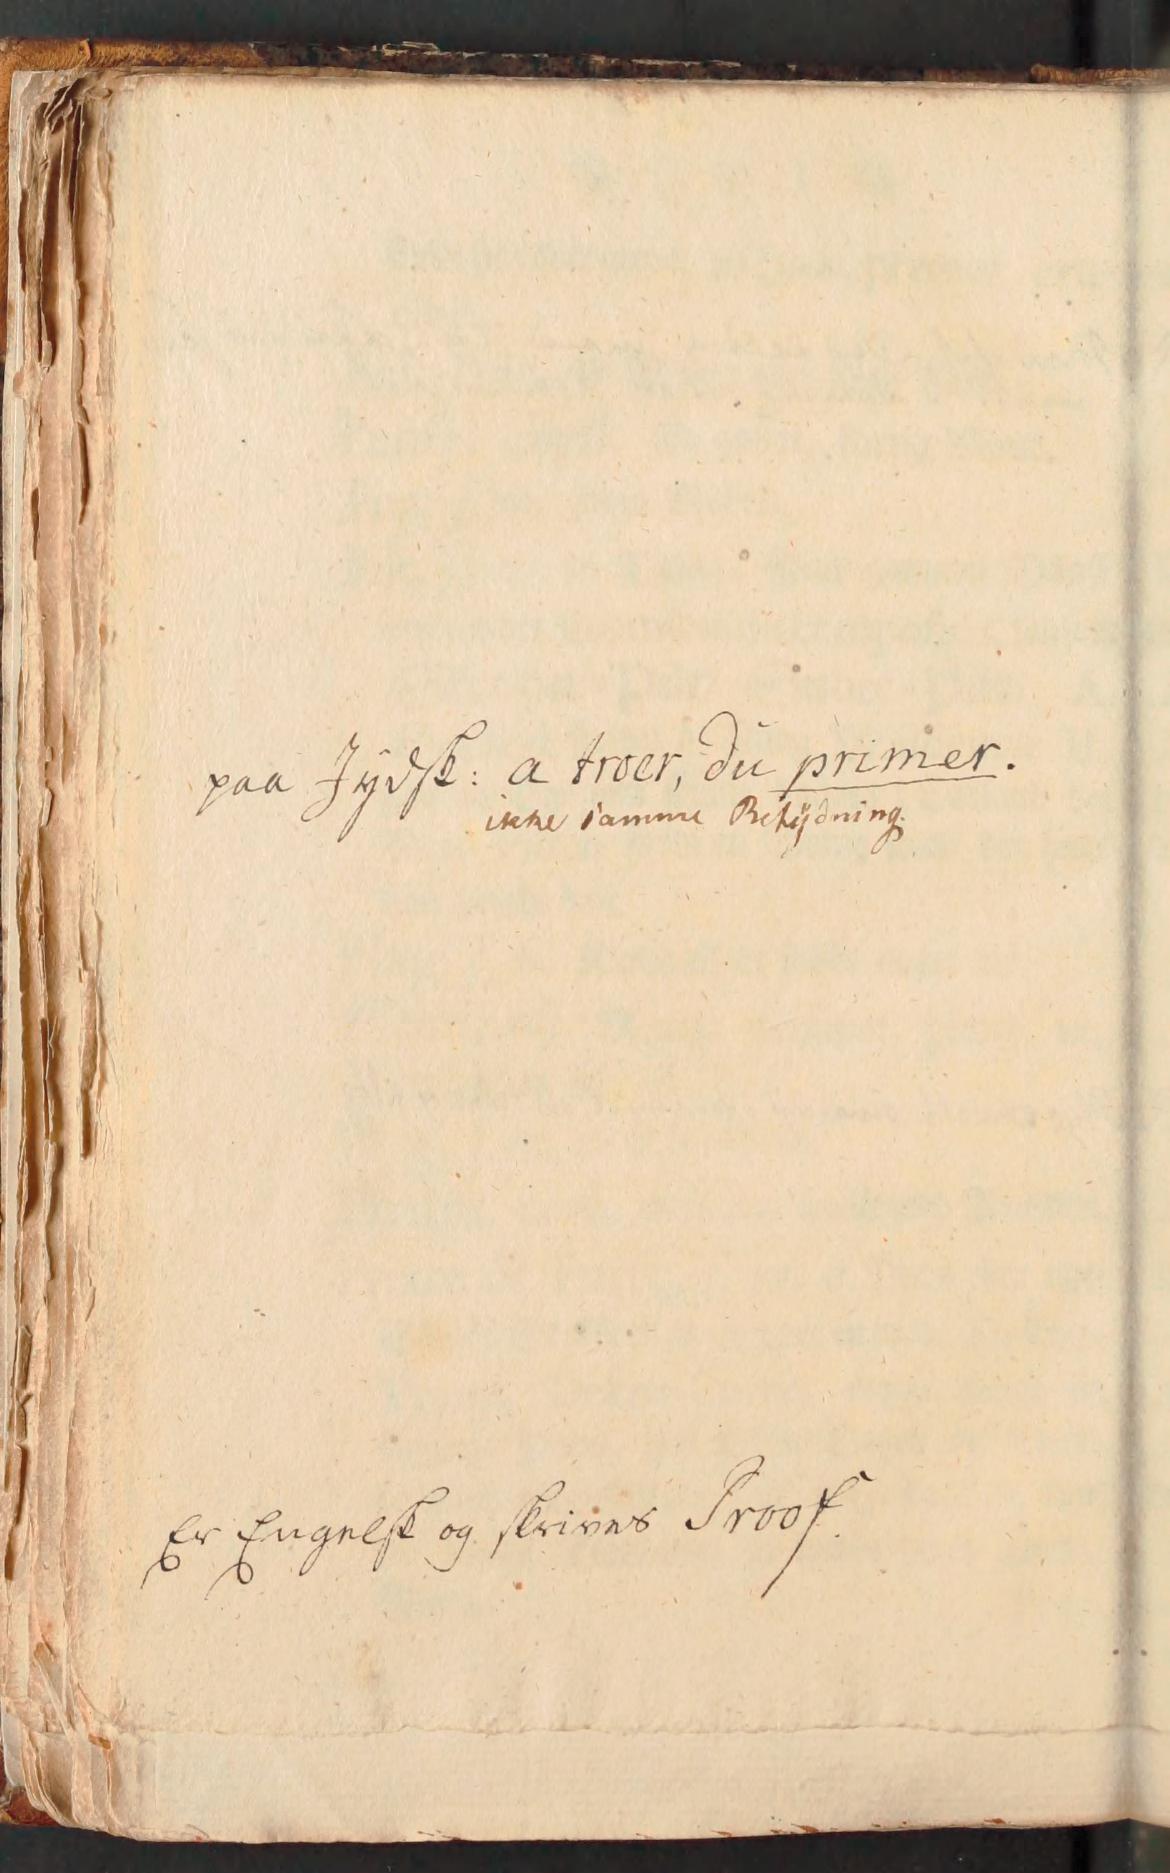 paa Jÿdsk: a troer, du primer.
ikke samme Betÿdning.
Er Engelsk og skrives Proof.